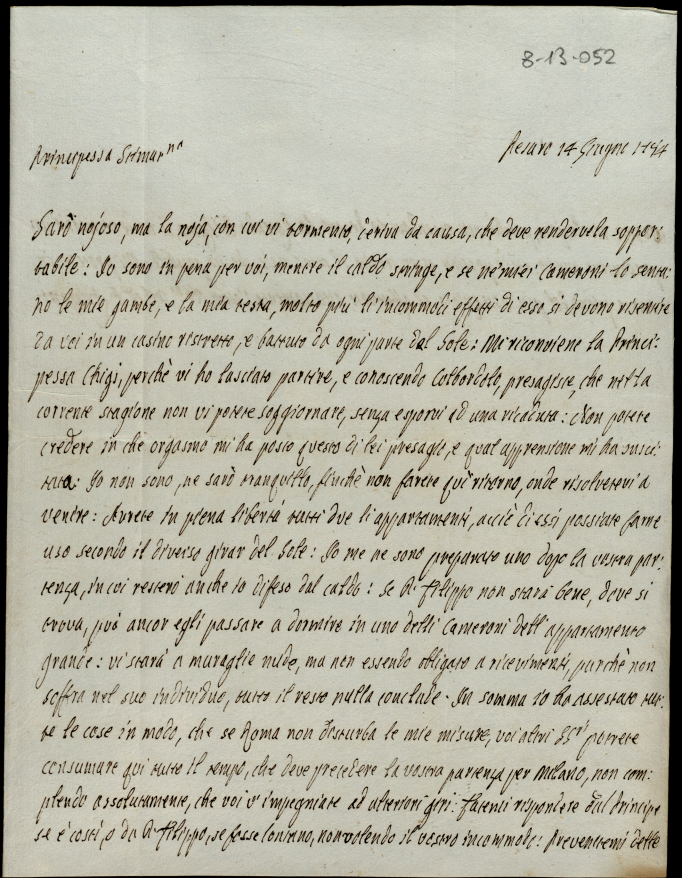 8-13-052
Principessa Stimat.ma
Pesaro 14 Giugno 1794
Sarò nojoso, ma la noja, con cui vi tormento, deriva da causa, che deve rendervela soppor:
tabile: Io sono in pena per voi, mentre il caldo stringe, e se ne' miei Cameroni lo sento:
no le mie gambe, e la mia testa, molto più l'incommodi effetti di esso si devono risentire
da voi in un casino ristretto, e battuto da ogni parte dal Sole: Mi riconviene la Princi:
pessa Chigi, perchè vi ho lasciato partire, e conoscendo Colbordolo, presagisce, che nella
corrente stagione non vi potete soggiornare, senza esporvi ad una ricaduta: Non potete
credere in che orgasmo mi ha posto questo di lei presagio, e qual apprensione mi ha susci:
tata: Io non sono, ne sarò tranquillo, finchè non farete quì ritorno, onde risolvetevi a
venire: Avrete in plena libertà tutti due li appartamenti, acciò di essi possiate farne
uso secondo il diverso girar del Sole: Io me ne sono preparato uno dopo la vostra par:
tenza, in cui resterò anche io difeso dal caldo: Se D. Filippo non starà bene, dove si
trova, può ancor egli passare a dormire in uno delli Cameroni dell'appartamento
grande: vi starà a muraglie nude, ma non essendo obligato a ricevimenti, purchè non
soffra nel suo individuo, tutto il resto nulla conclude. In somma io ho assestato tut:
te le cose in modo, che se Roma non disturba le mie misure, voi altri SS.ri potrete
consumare qui tutto il tempo, che deve precedere la vostra partenza per Milano, non com:
plendo assolutamente, che voi v'impegniate ad ulteriori giri: fatemi rispondere dal Principe
se è costì, o da D. Filippo, se fosse lontano, non volendo il vostro incommodo: Prevenitemi delle